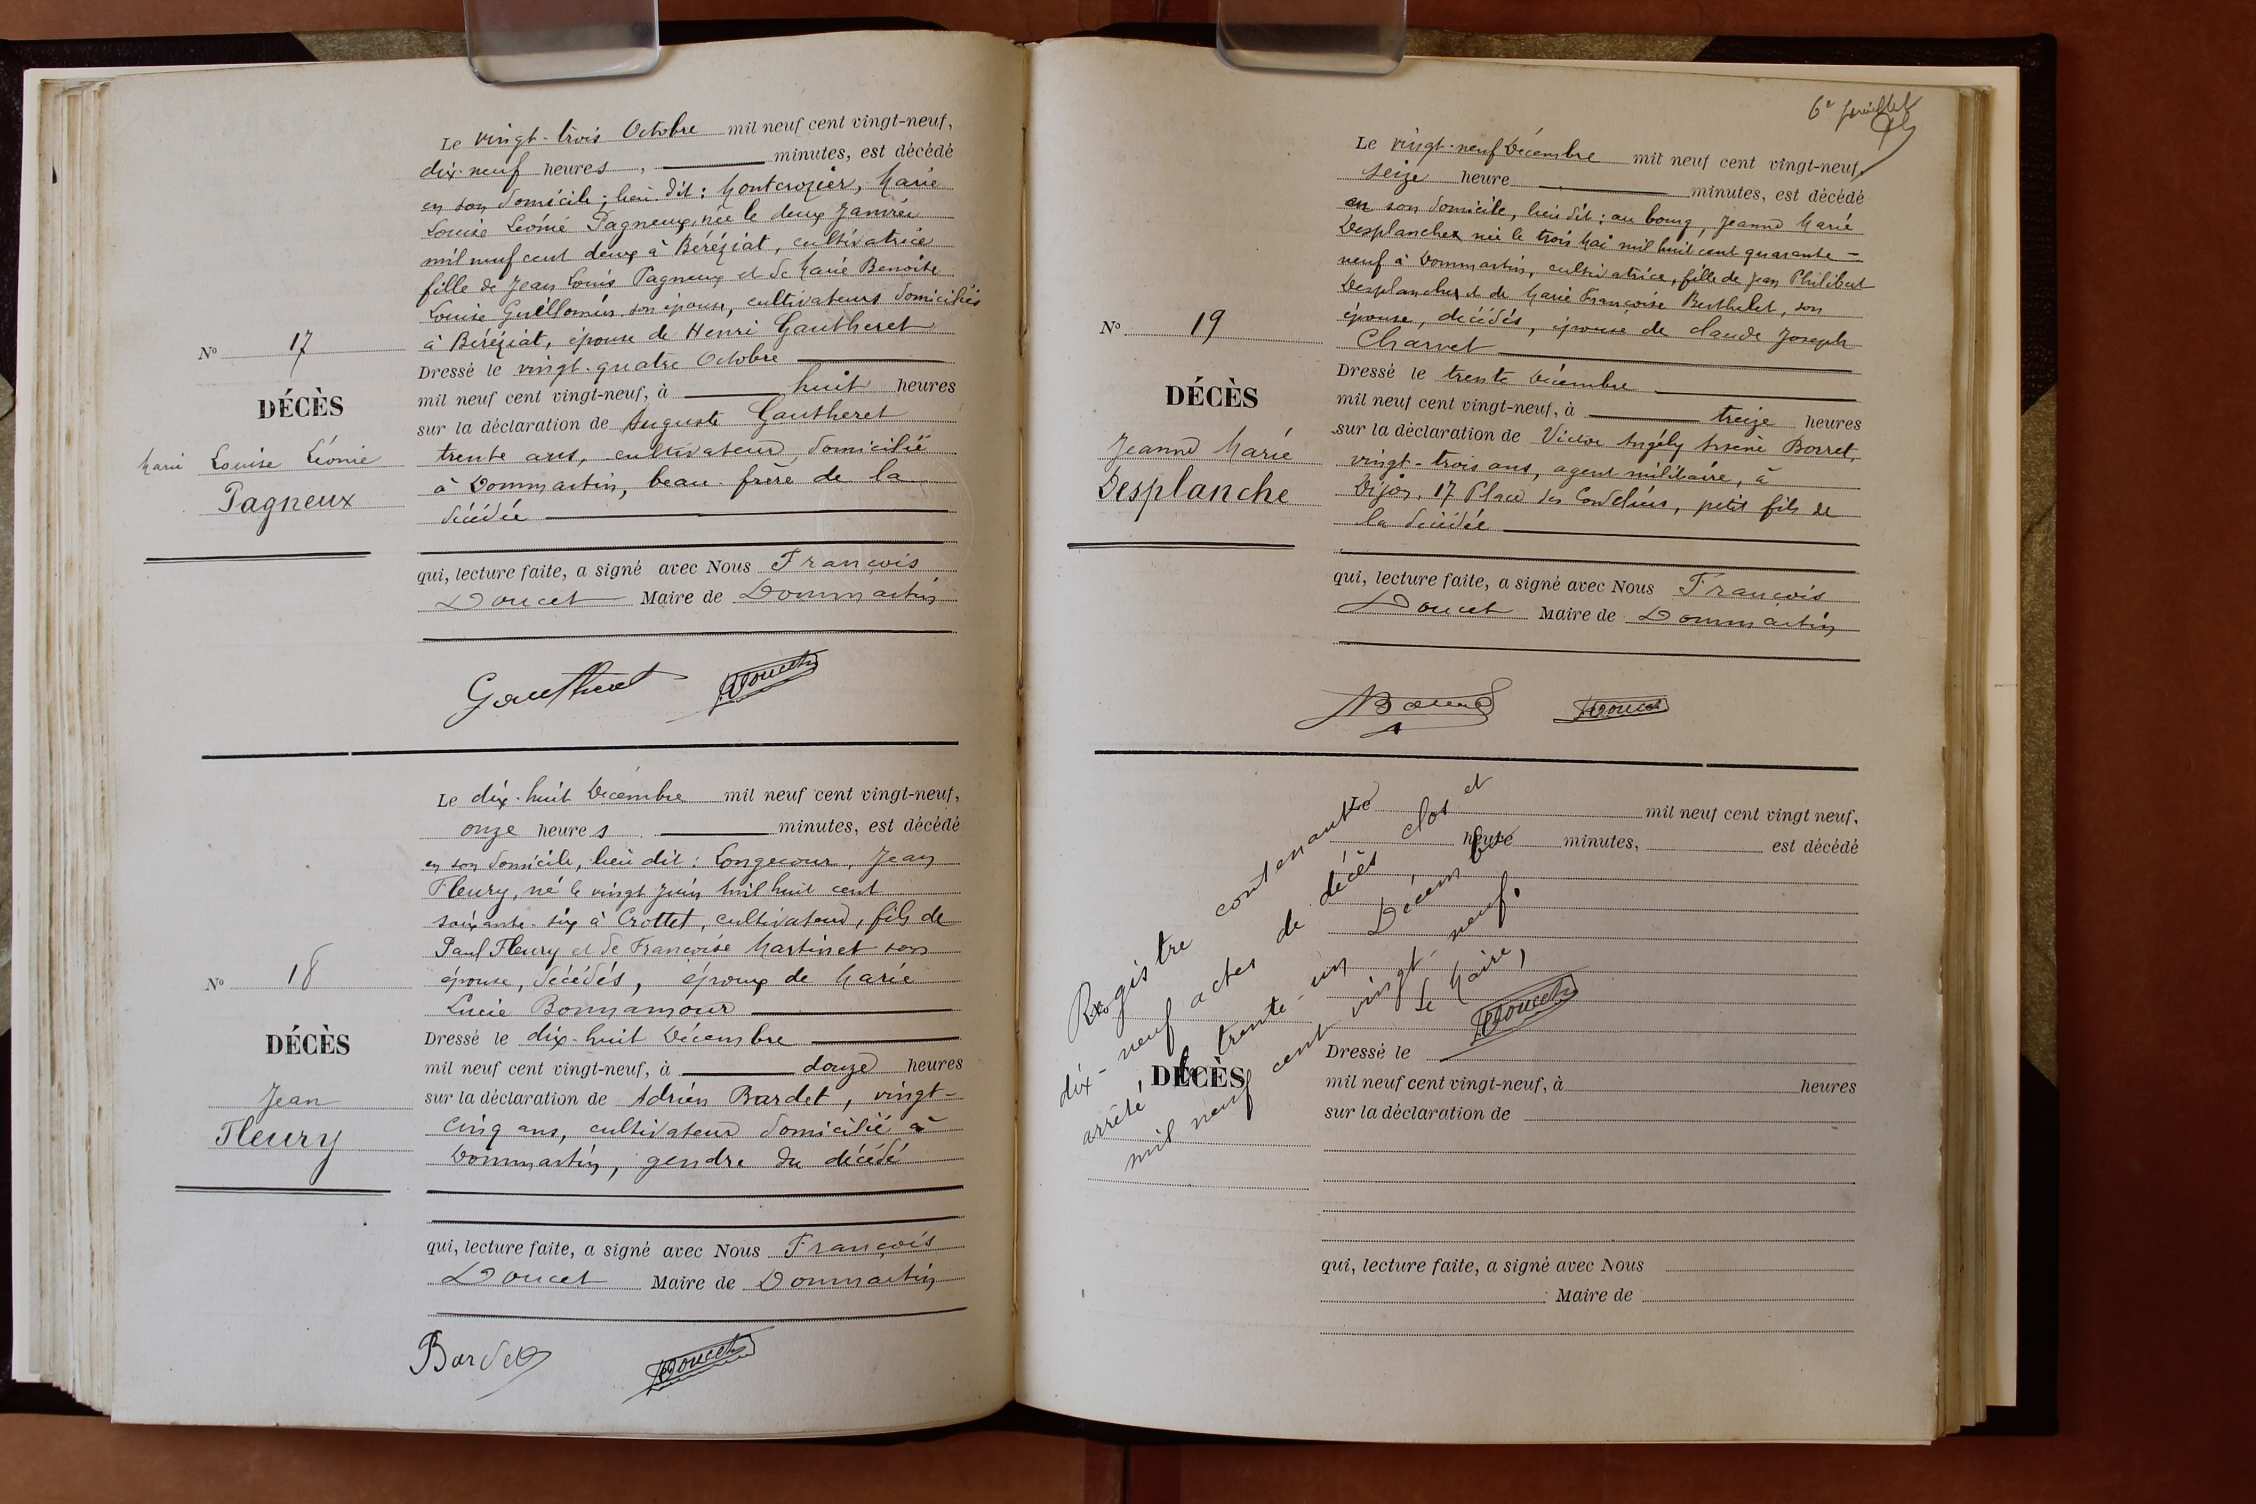 Le vingt-trois Octobre mil neuf cent vingt-neuf,
dix-neuf heures, minutes, est décédé
en son domicile, lieu dit : Montcrozier, Marie
Louise Léonie Pagneux, née le deux Janvier
mil neuf cent deux à Béréziat, cultivatrice
fille de Jean Louis Pagneux et de Marie Benoite
Louise Guillomin son épouse, cultivateurs domiciliés
à Béréziat, épouse de Henri Gautheret
Dressé le vingt-quatre Octobre
mil neuf cent vingt-neuf, à huit heures
sur la déclaration de Auguste Gautheret
trente ans, cultivateur, domicilié
à Dommartin, beau-frère de la
décédée
qui, lecture faite, a signé avec Nous François
Doucet Maire de Dommartin
Gautheret Doucet
No 17
DÉCÈS
Marie Louise Léonie
Pagneux
Le dix-huit Décembre mil neuf cent vingt-neuf,
onze heures minutes, est décédé
en son domicile, lieu dit : Longecour, Jean
Fleury, né le vingt Juin mil huit cent
soixante-six à Crottet, cultivateur, fils de
Paul Fleury et de Françoise Martinet son
épouse, décédés, époux de Marie
Lucie Bonnamour
Dressé le dix-huit Décembre
mil neuf cent vingt-neuf, à douze heures
sur la déclaration de Adrien Bardet, vingt-
cinq ans, cultivateur domicilié à
Dommartin, gendre du décédé
qui, lecture faite, a signé avec Nous François
Doucet Maire de Dommartin
Bardet Doucet
No 18
DÉCÈS
Jean
Fleury
6e feuillet
Le vingt-neuf Décembre mil neuf cent vingt-neuf,
seize heure minutes, est décédé
en son domicile, lieu dit : au bourg, Jeanne Marie
Desplanches née le trois Mai mil huit cent quarante-
neuf à Dommartin, cultivatrice, fille de Jean Philibert
Desplanches et de Marie Françoise Berthelet, son
épouse, décédés, épouse de Claude Joseph
Charvet
Dressé le trente Décembre
mil neuf cent vingt-neuf, à treize heures
sur la déclaration de Victor Angély Arsène Borret,
vingt-trois ans, agent militaire, à
Dijon, 17 Place des Cordeliers, petit fils de
la décédée
qui, lecture faite, a signé avec Nous François
Doucet Maire de Dommartin
Doucet
No 19
DÉCÈS
Jeanne Marie
Desplanche
Le mil neuf cent vingt neuf,
heure minutes, est décédé
Registre contenant
dix-neuf actes de décès clos et
arrêté, le trente-un Décembre
mil neuf cent vingt-neuf.
Le Maire,
Doucet
No
DÉCÈS
Dressé le
mil neuf cent vingt-neuf, à heures
sur la déclaration de
qui, lecture faite, a signé avec Nous
Maire de